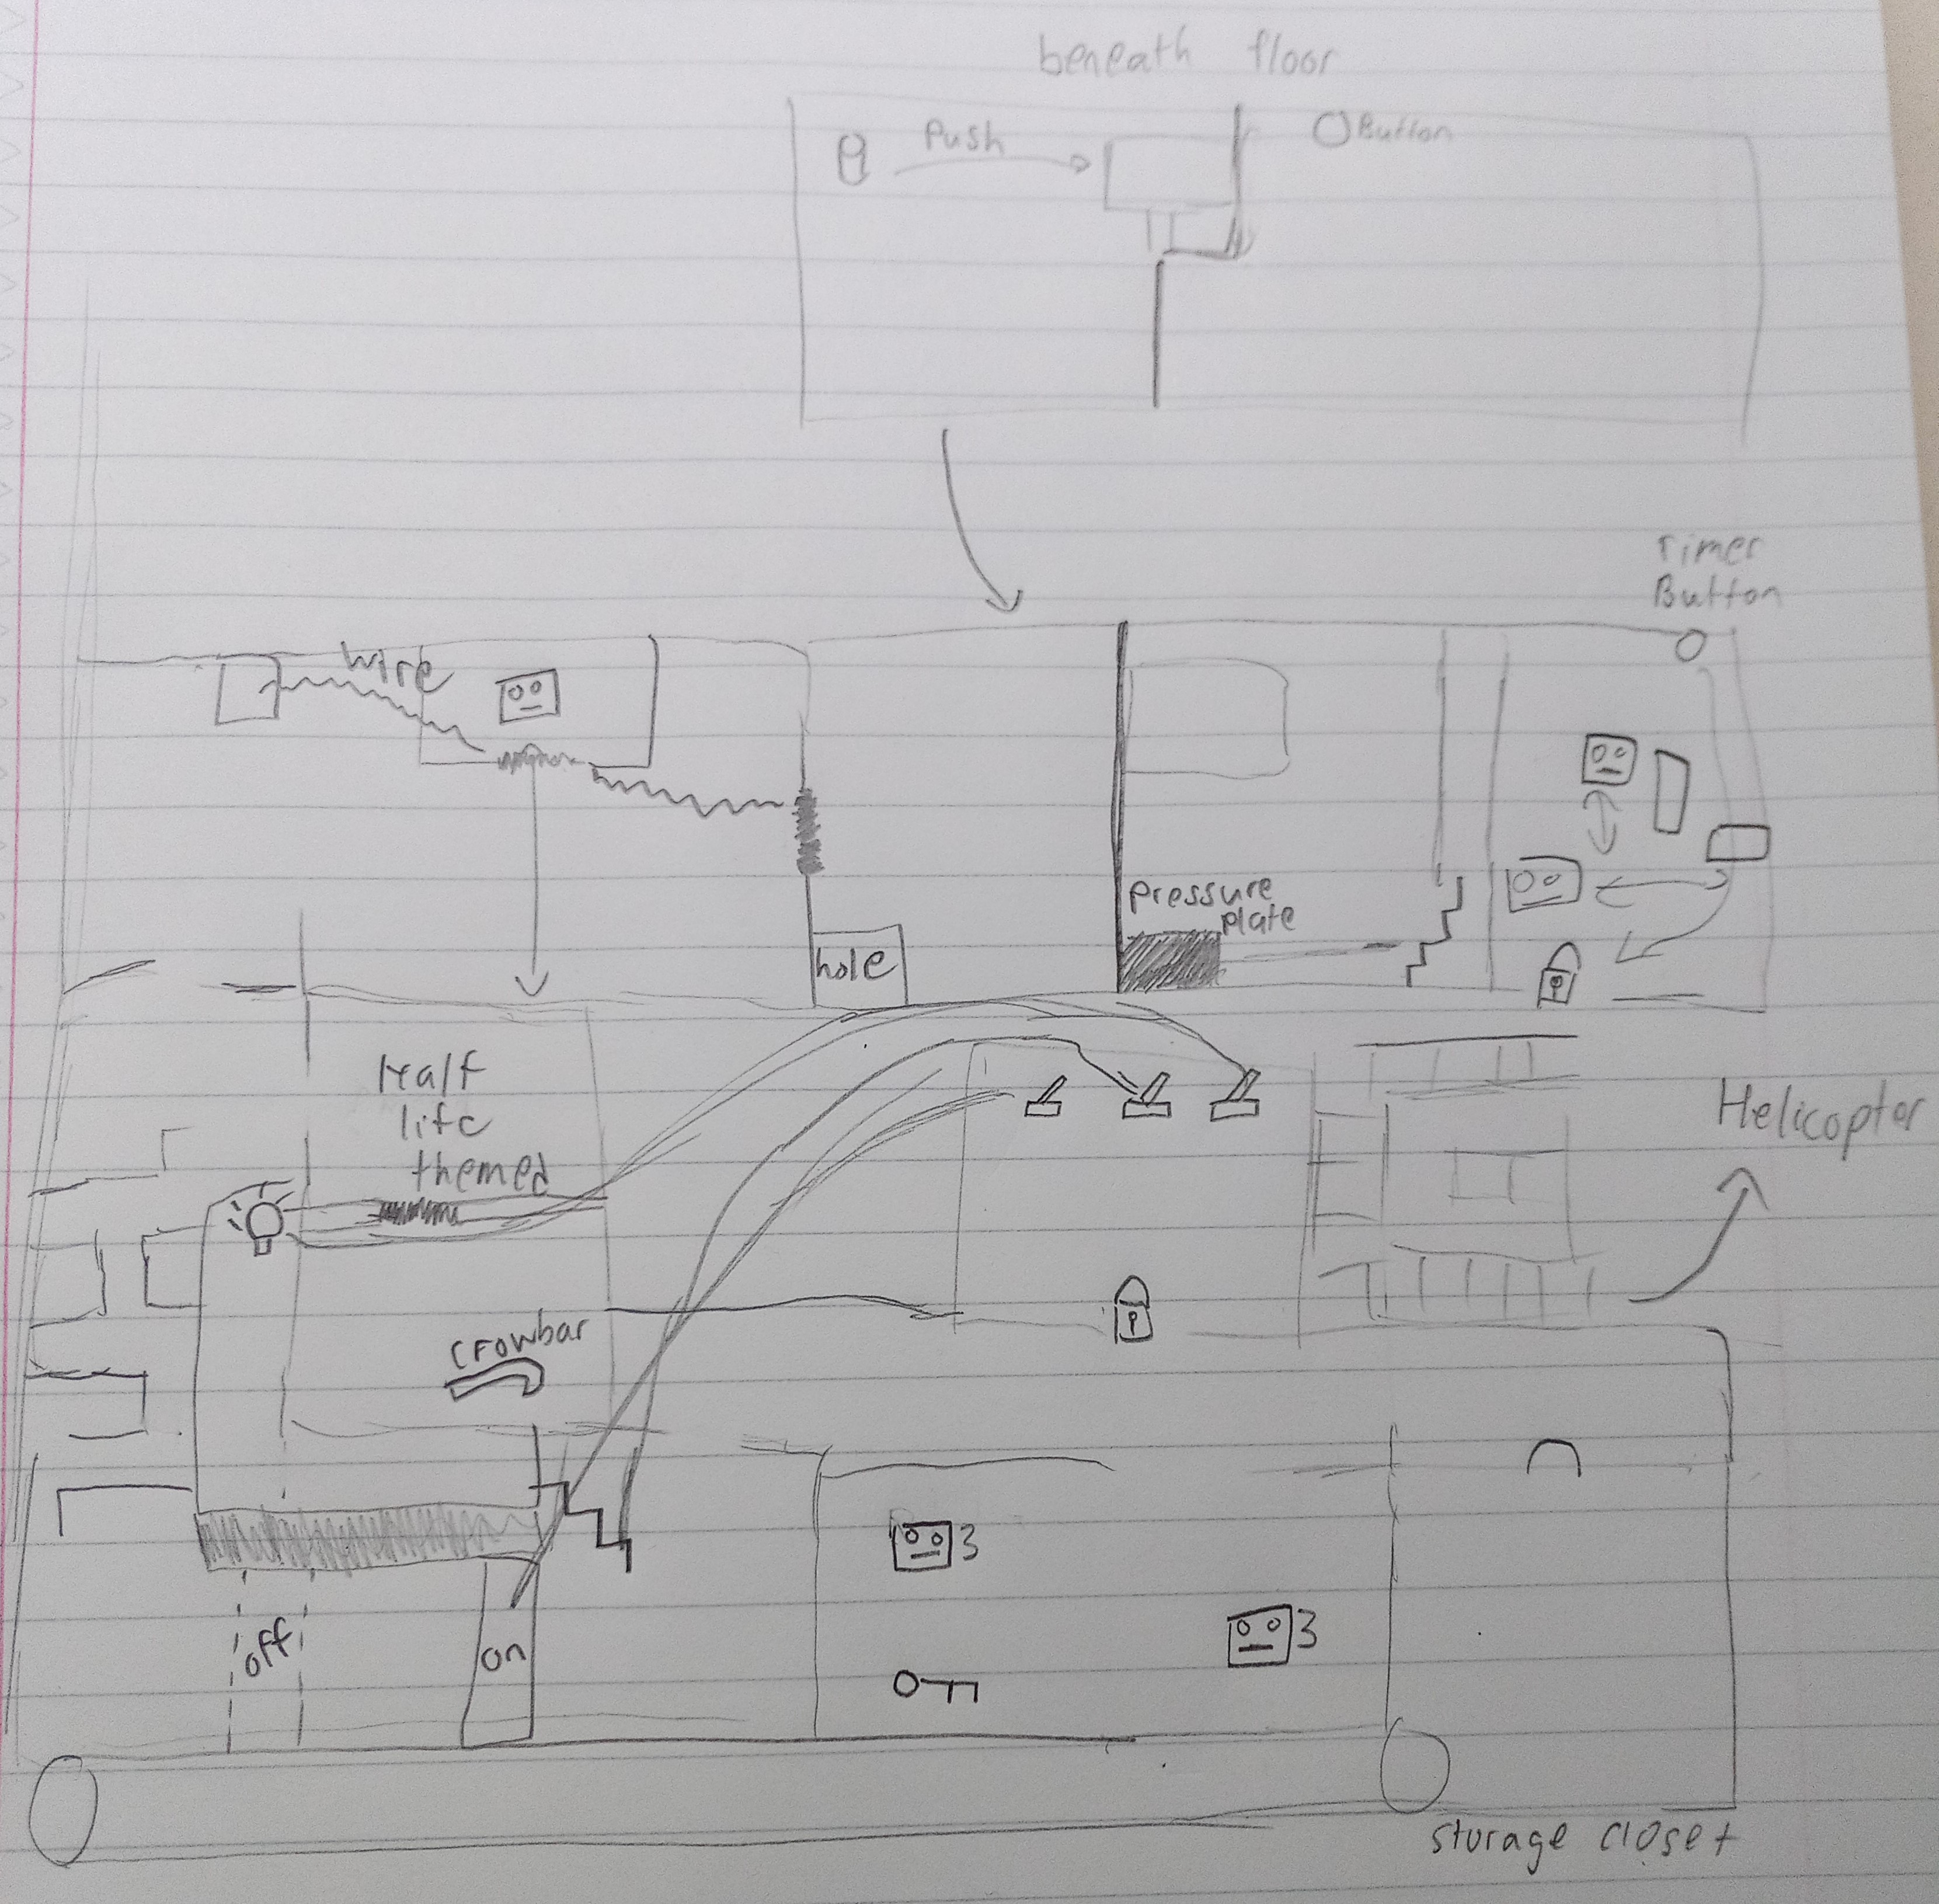 beneath floor
Push
Button
Timer
Button
wire
pressure
plate
hole
Half
life
themed
Helicopter
crowbar
3
3
off
on
storage closet